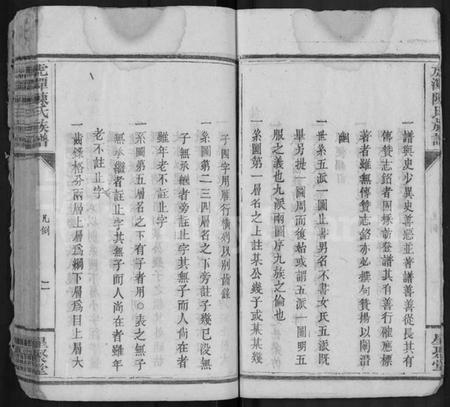 一譜與史少異史善惡並著譜善善從長其有
傳贊志銘者固採訪登譜其有善行確應標
著者雖無傳銘者亦必撰句贊揚以闡潛
幽
一世系五派一圖止書男名不書女氏五派既
畢另提一圖周而復始或謂五派一圖明五
服之義也九派兩圖序九族之倫也
一系圖第一層名之上註某公幾子或某某幾
子四字用層行橫列以別齒錄
一系圖第二三四層名之下旁註子幾已沒無
子無承繼者旁註止字其無子而人尚在者
雖年老不註止字
一系圖第五層名之下有子者用○表之無子
無承繼者註止字其無子而人尚在者雖年
老不註止字
一齒錄格分兩層上層為綱下層為目上層大
虎潭陳氏族譜
凡例
二
星聚堂